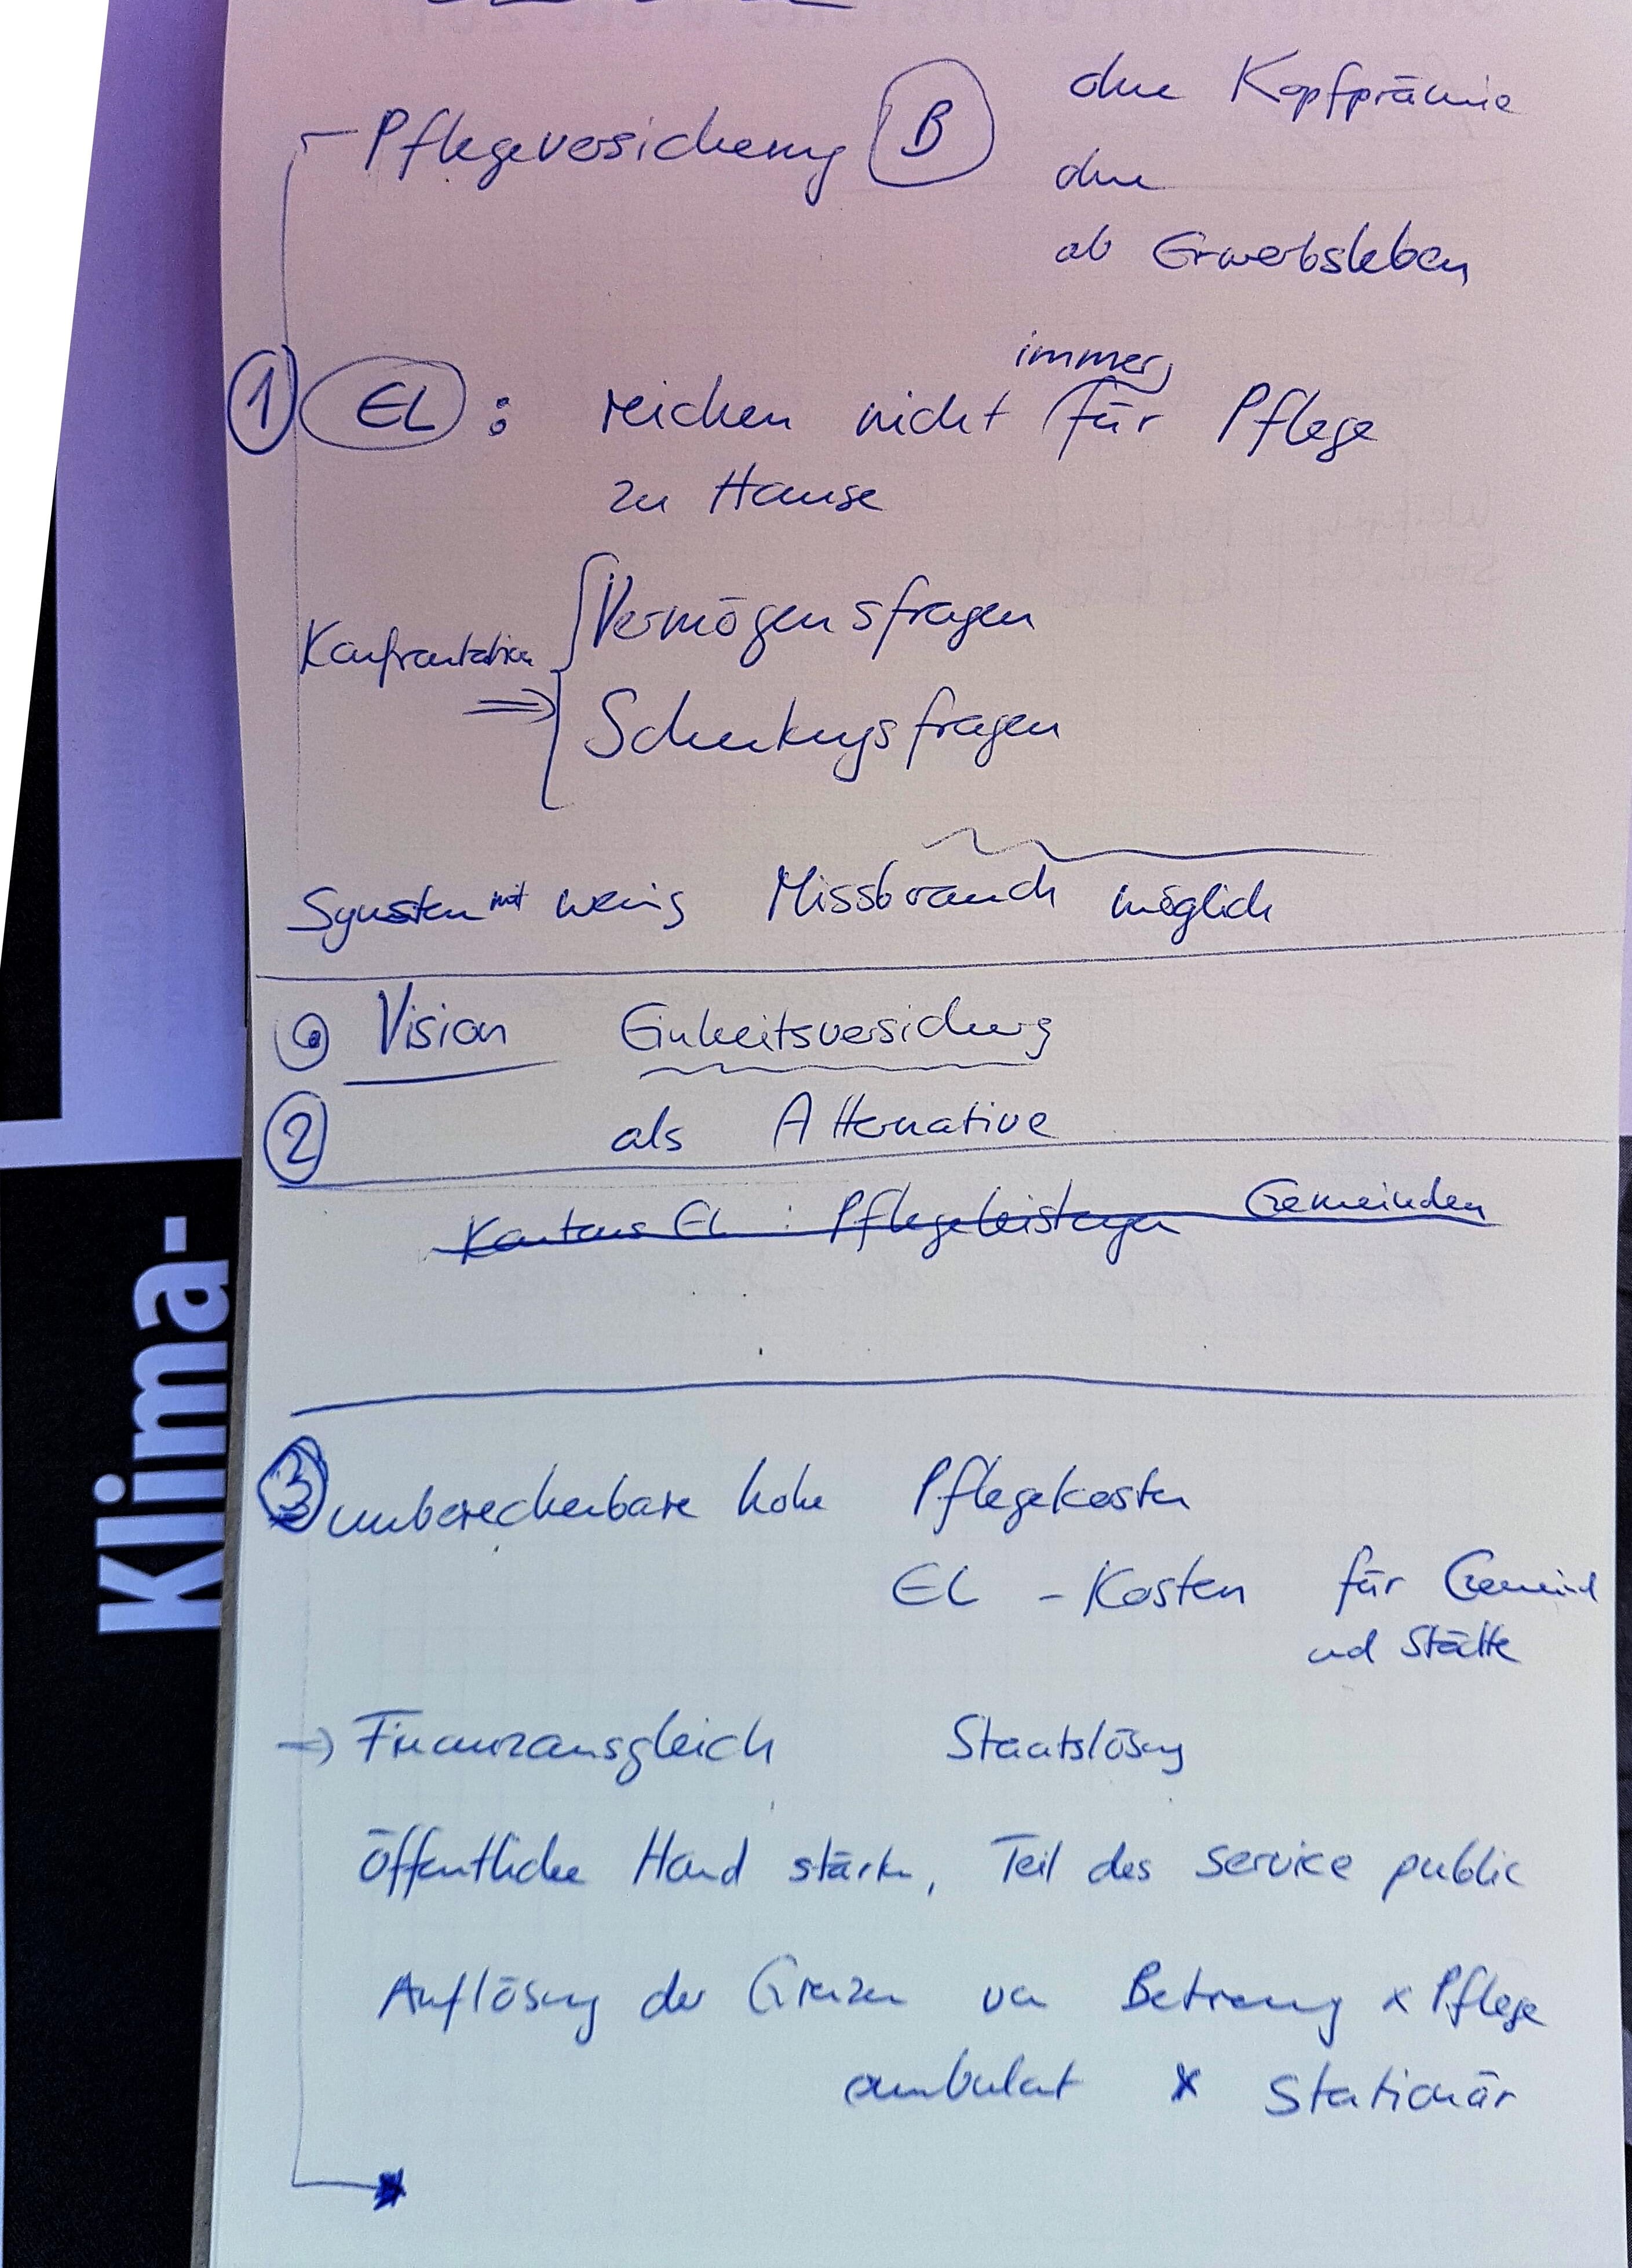 Pflegeversicherung B ohne Kopfprämie
ohne
ab Erwerbsleben
immer
1 EL : reichen nicht für Pflege
zu Hause
Vermögensfragen
Konfrontation
⇒ Schenkungsfragen
System mit wenig Missbrauch möglich
Vision Einheitsversicherung
2 als Alternative
Kantons EL : Pflegeleistungen Gemeinden
3 unberechenbare hohe Pflegekosten
EL - Kosten für Gemeind
und Städte
⇒ Finanzausgleich Staatslösung
öffentliche Hand stärken, Teil des service public
Auflösung der Grenzen von Betreuung x Pflege
ambulant x stationär
Klima-